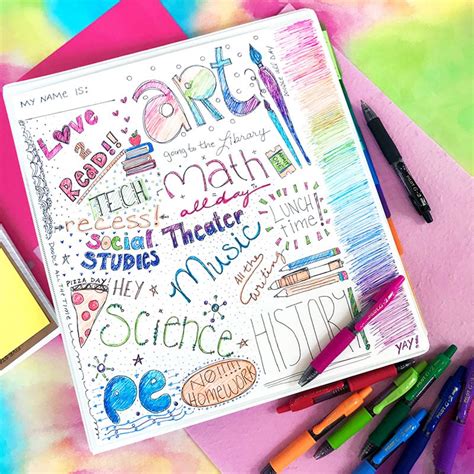 MY NAME IS:
art
Love
2
Read!!!
going to the Library
TECH
Math
all day
recess!
Social
STUDIES
Theater
LUNCH
time!
Music
All the
Writing
PIZZA DAY
HEY
Science
HISTORY
pe
NO!!!!
HOMEWORK
YAY!